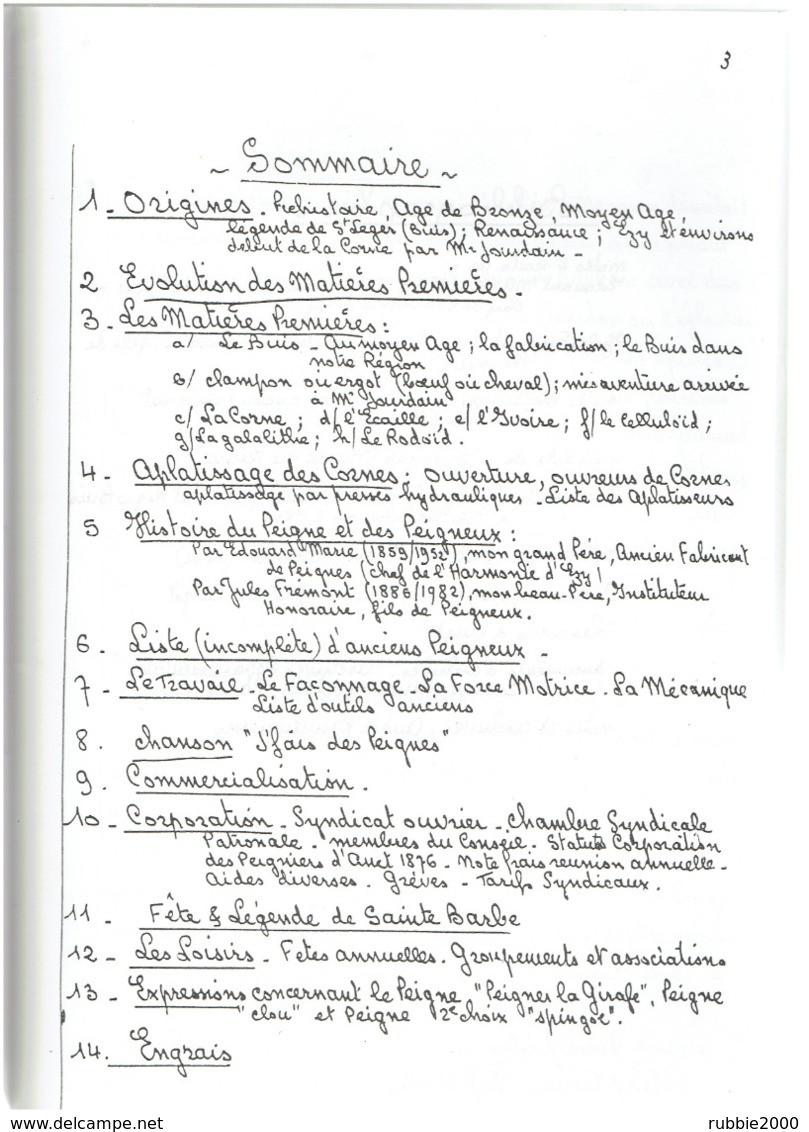 3
~ Sommaire ~
1 - Origines - Préhistoire, Age de Bronze, Moyen Age,
légende de St Leger (Buis) ; Renaissance ; Ezy et environs
début de la Corne par Mr Jourdain -
2 Evolution des Matières Premières.
3 - Les Matières Premières :
a/ Le Buis - Au moyen Age ; la fabrication ; le Buis dans
notre Région
b/ clampon où ergot (bœuf où cheval) ; mésaventure arrivée
à Mr Jourdain
c/ La Corne ; d/ l'Ecaille ; e/ l'Ivoire ; f/ le celluloïd ;
g/ La galalithe ; h/ Le Rodoïd.
4 - Aplatissage des Cornes ; ouverture, ouvreurs de Cornes
aplatissage par presses hydrauliques - Liste des Aplatisseurs
5 Histoire du Peigne et des Peigneux :
Par Edouard Marie (1859/1952), mon grand Père, Ancien Fabricant
de Peignes (chef de l'Harmonie d'Ezy)
Par Jules Frémont (1886/1982), mon beau-Père, Instituteur
Honoraire, fils de Peigneux.
6 - Liste (incomplète) d'anciens Peigneux -
7 - Le Travail - Le Façonnage - La Force Motrice - La Mécanique
Liste d'outils anciens
8 . chanson "J'fais des Peignes"
9 . Commercialisation .
10 - Corporation - Syndicat ouvrier - Chambre Syndicale
Patronale - membres du Conseil - Statuts Corporation
des Peigniers d'Anet 1876 - Note frais reunion annuelle -
Aides diverses . Grèves - Tarifs Syndicaux .
11 - Fête & Légende de Sainte Barbe
12 - Les Loisirs - Fetes annuelles . Groupements et associations
13 - Expressions concernant le Peigne "Peigner la Girafe", Peigne
"clou" et Peigne 2e choix "spingoc".
14 . Engrais
www.delcampe.net
rubbie2000